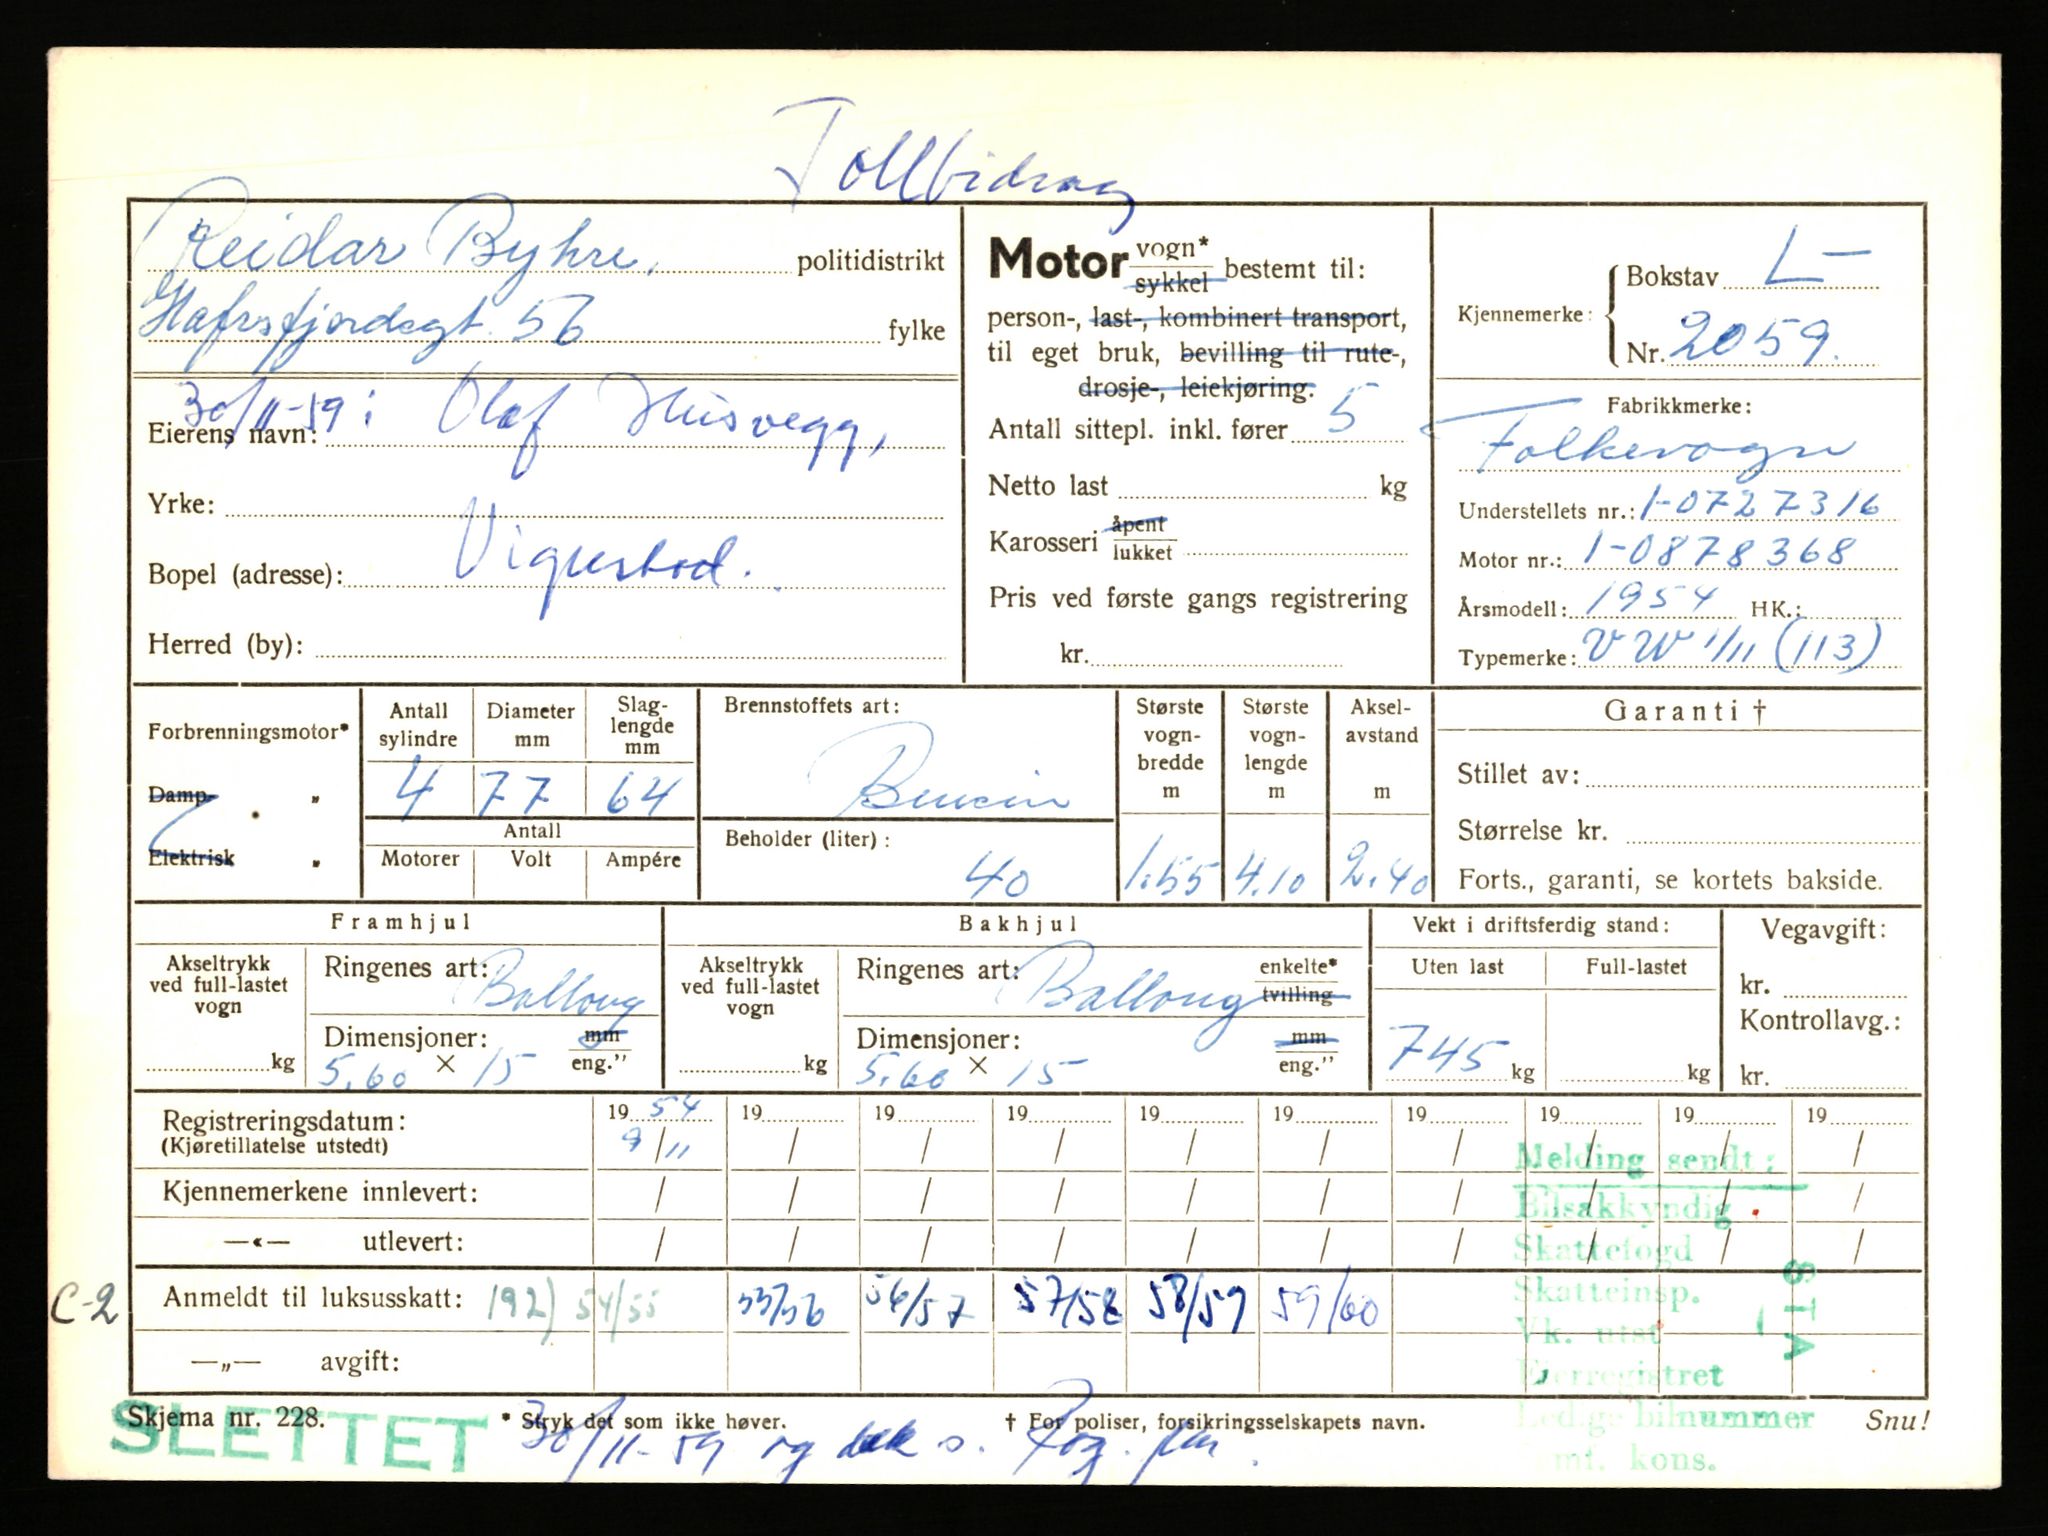 Tollbidrag
Reidar Byhre, politidistrikt
Hafrsfjordsgt. 56 fylke
30/11-59: Olaf Husvegg,
Eierens navn:
Yrke:
Bopel (adresse): Vigrestad.
Herred (by):
Motor vogn* sykkel bestemt til:
person-, last-, kombinert transport,
til eget bruk, bevilling til rute-,
drosje-, leiekjøring.
Antall sittepl. inkl. fører 5
Netto last kg
Karosseri åpent lukket
Pris ved første gangs registrering
kr.
Kjennemerke: Bokstav L-
Nr. 2059.
Fabrikkmerke:
Folkevogn
Understellets nr.: 1-0727316
Motor nr.: 1-0878368
Årsmodell: 1954 HK.:
Typemerke: VW 1/11 (113)
Forbrenningsmotor*
Damp- „
Elektrisk „
Antall sylindre 4
Diameter mm 77
Slag-lengde mm 64
Antall
Motorer Volt Ampére
Brennstoffets art:
Bensin
Beholder (liter):
40
Største vogn-bredde m 1.55
Største vogn-lengde m 4.10
Aksel-avstand m 2.40
Garanti †
Stillet av:
Størrelse kr.
Forts., garanti, se kortets bakside.
Framhjul
Akseltrykk ved full-lastet vogn
kg
Ringenes art: Ballong
Dimensjoner: mm eng.”
5.60 × 15
Bakhjul
Akseltrykk ved full-lastet vogn
kg
Ringenes art: Ballong enkelte* tvilling
Dimensjoner: mm eng.”
5.60 × 15
Vekt i driftsferdig stand:
Uten last Full-lastet
745 kg kg
Vegavgift:
kr.
Kontrollavg.:
kr.
Registreringsdatum: 19 54 19 19 19 19 19 19 19 19 19
(Kjøretillatelse utstedt) 9/11 / / / / / / / / /
Kjennemerkene innlevert: / / / / / / / / / /
—«— utlevert: / / / / / / / / / /
C-2 Anmeldt til luksusskatt: 192) 54/55 55/56 56/57 57/58 58/59 59/60
—„— avgift:
Melding sendt:
Bilsakkyndig
Skattefogd
Skatteinsp.
Vk. utst
Eierregistret
Ledige bilnummer
mt. kons.
Skjema nr. 228. * Stryk det som ikke høver. † For poliser, forsikringsselskapets navn. Snu!
SLETTET
30/11-59 og